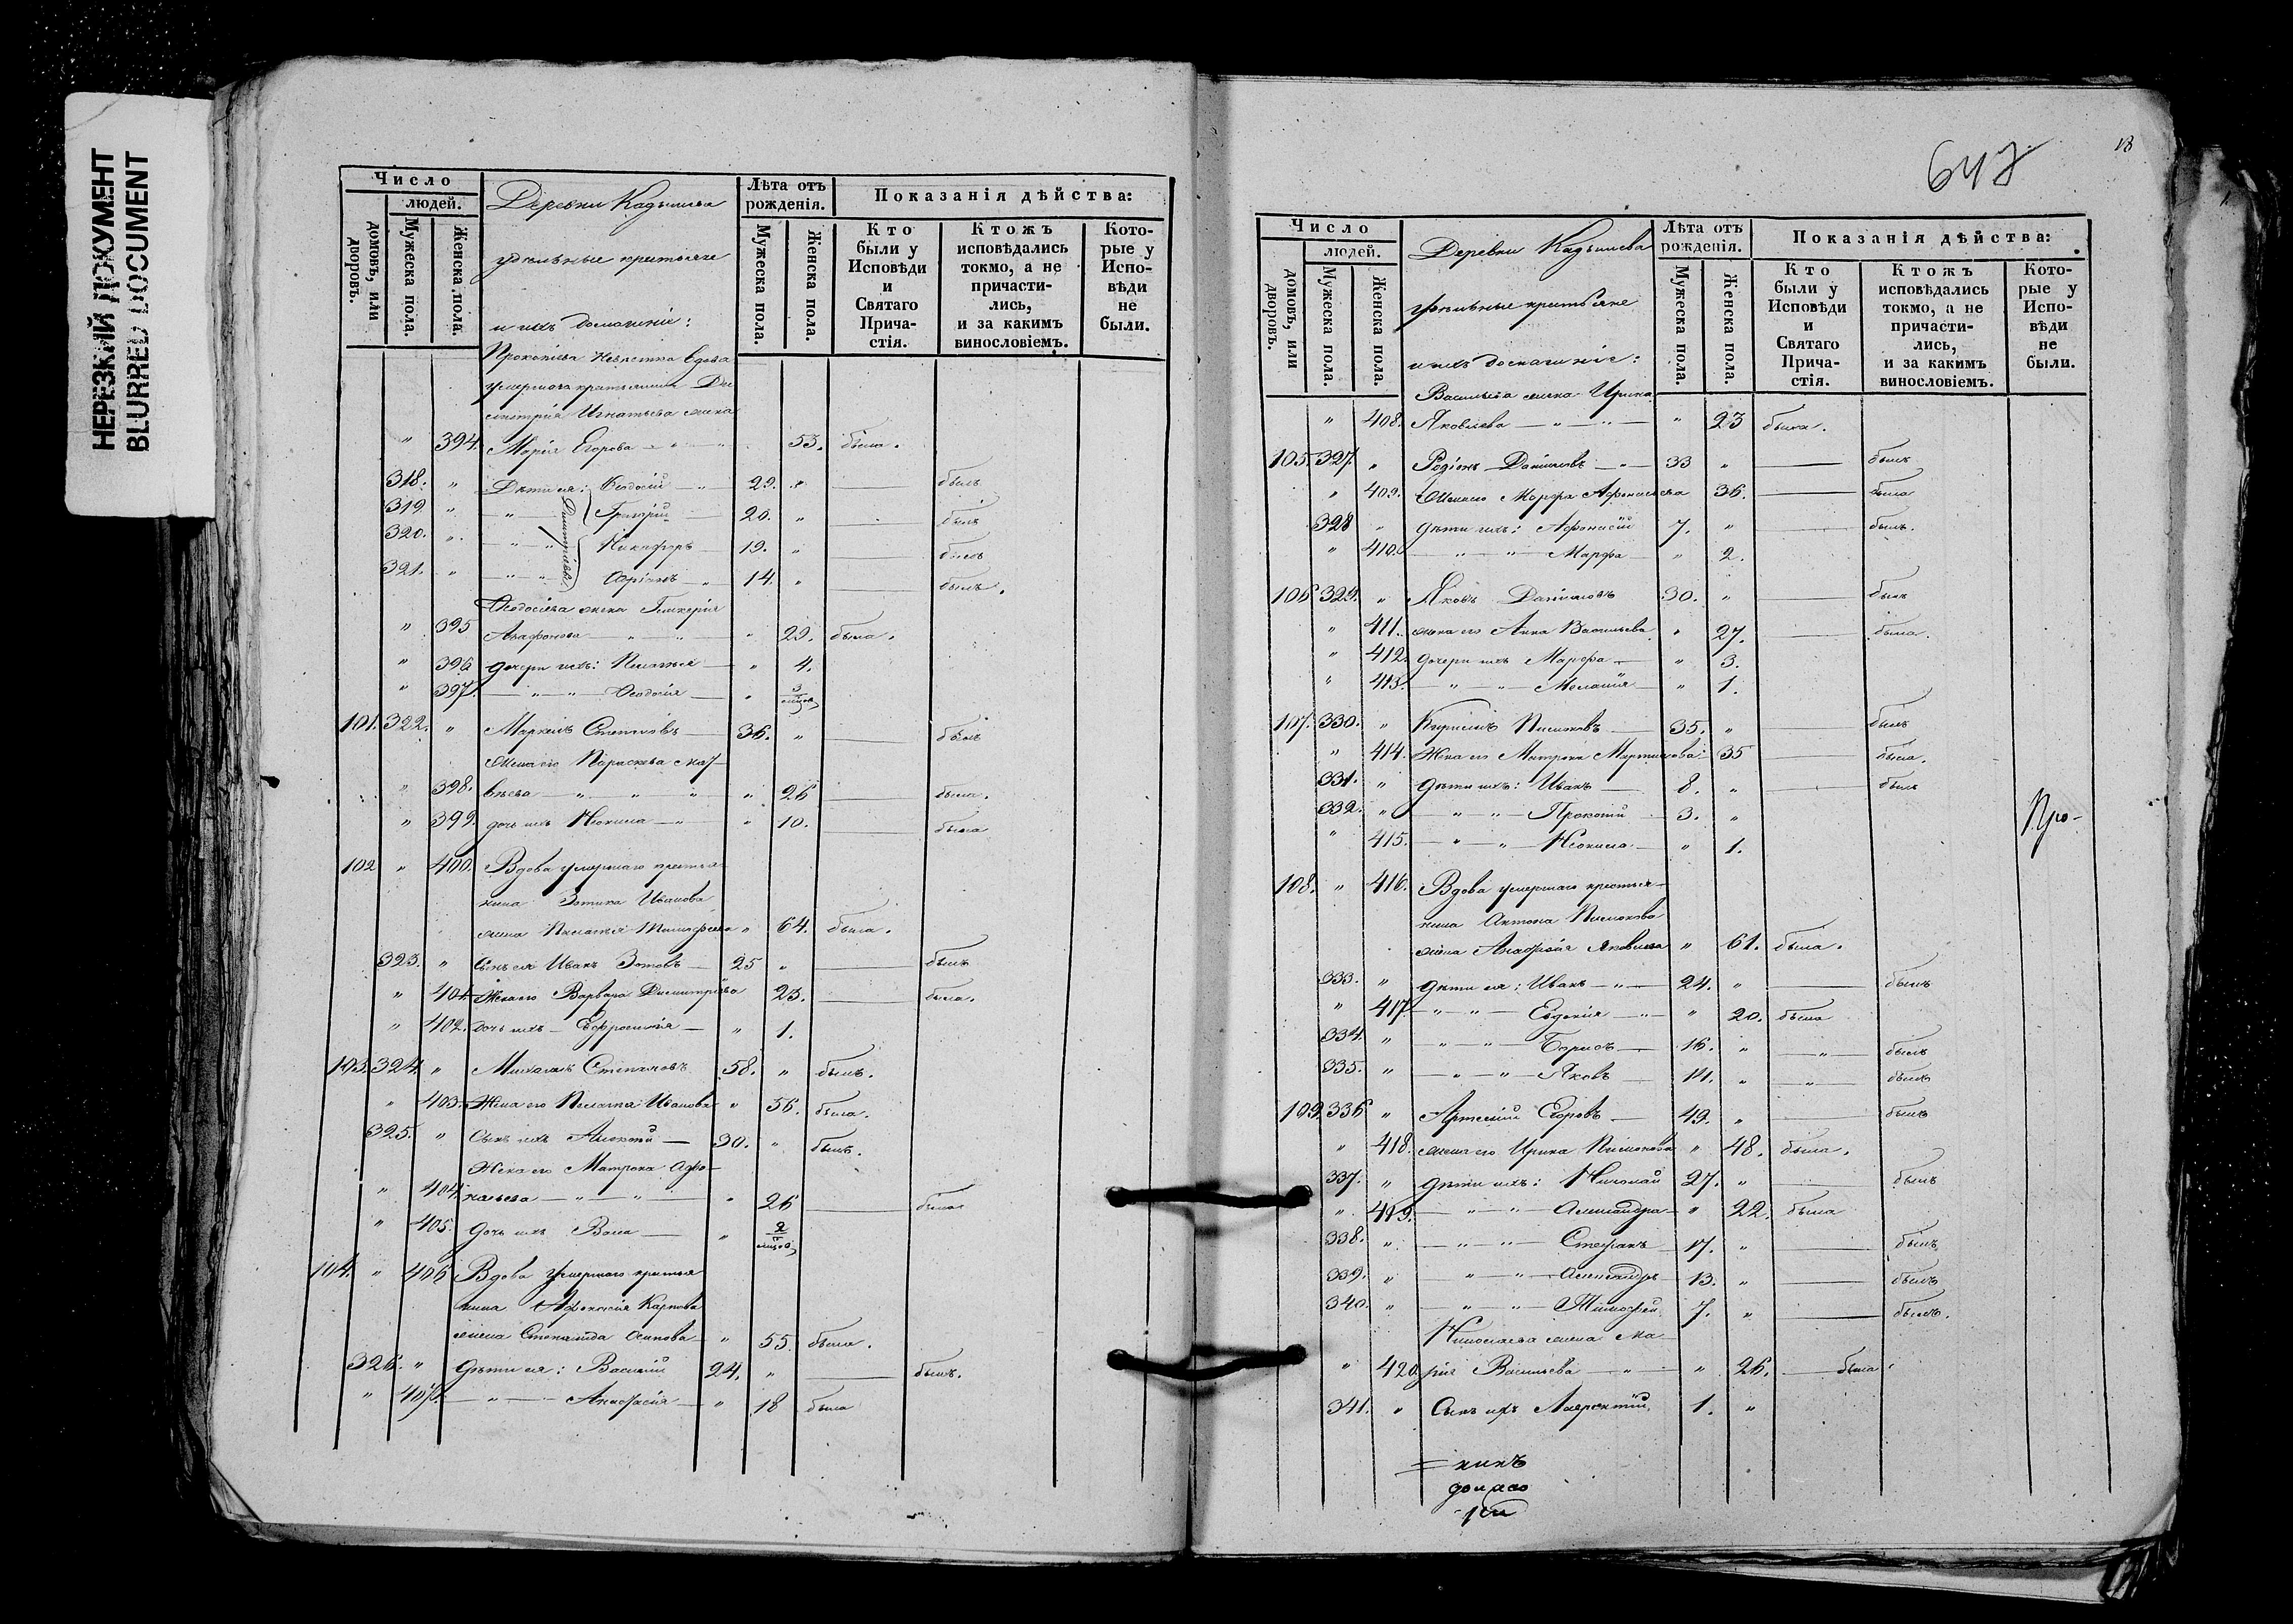 НЕРЕЗКИЙ ДОКУМЕНТ
BLURRED DOCUMENT
Число
людей.
домовъ, или дворовъ.
Мужеска пола.
Женска пола.
Деревни Кадышева
удѣльные крестьяне
и ихъ домашніе:
Лѣта отъ рожденія.
Мужеска пола.
Женска пола.
Показанія дѣйства:
Кто были у Исповѣди и Святаго Прича-стія.
Ктожъ исповѣдались токмо, а не причасти-лись, и за какимъ винословіемъ.
Кото-рые у Испо-вѣди не были.
Прокопіева невѣстка вдова
умершаго крестьянина Ди
митрія Игнатьева жена
" 394. Марія Егорова — " — " 53. была.
318. " Дѣти ея: Ѳеодосій — " 29. " — былъ
319. " — " Григорій — 20. " — былъ
Димитріевы
320. " — " — " Никифоръ — 19. " — былъ
321. " — " — " Адріанъ — " 14. " — былъ.
Ѳеодосіева жена Гликерія
" 395 Агафонова — " — " — " 29. была.
" 396 дочери ихъ: Пелагія — " 4.
" 397. — " — " — Ѳеодосія — " 3 мѣсяц.
101. 322. " Маркелъ Степановъ — 36. " — былъ
Жена его Параскева Мат-
" 398. вѣева — " — " — " " 26 — была.
" 399. дочь ихъ Неонила — " — " 10. — была
102 " 400. Вдова умершаго крестья
нина Зотика Иванова
жена Пелагія Тимофеева " 64. была.
323. " Сынъ ея Иванъ Зотовъ — 25 " — былъ
" 401. Жена его Варвара Димитріева 23. — была.
" 402. дочь ихъ — Ефросинія — " 1.
103. 324. " Михаилъ Степановъ 58. " былъ.
" 403. Жена его Пелагея Иванова " 56. была.
325. " Сынъ ихъ Алексѣй — 30. " былъ.
Жена его Матрона Афо-
" 404. насьева — " — " — " 26 — была
" 405. дочь ихъ Васса — " 2 мѣсяц.
104. " 406 Вдова умершаго крестья
нина Афанасія Карпова
жена Степанида Осипова — " 55. была.
326. " Дѣти ея: Василій 24. " — былъ.
" 407. — " — Анастасія — " 18 была
647
18
Число
людей.
домовъ, или дворовъ.
Мужеска пола.
Женска пола.
Деревни Кадышева
удѣльные крестьяне
и ихъ домашніе:
Лѣта отъ рожденія.
Мужеска пола.
Женска пола.
Показанія дѣйства:
Кто были у Исповѣди и Святаго Прича-стія.
Ктожъ исповѣдались токмо, а не причасти-лись, и за какимъ винословіемъ.
Кото-рые у Испо-вѣди не были.
Васильева жена Ирина
" 408. Яковлева — " — " — " 23 была.
105. 327. " Родіонъ Даниловъ — " — 33 " — былъ
" 409. Жена его Марфа Афанасьева 36. — была
328 " дѣти ихъ: Афонасій 7. " — былъ.
" 410. — " — " — Марфа — " 2.
106 329. " Яковъ Даниловъ 30. " — былъ
" 411. жена его Анна Васильева " 27. — была.
" 412. дочери ихъ Марфа — " 3.
" 413. — " — " — Меланія — " 1.
107. 330. " Кириллъ Пименовъ — 35. " — былъ
" 414. Жена его Матрона Мартинова: 35 — была.
331. " дѣти ихъ: Иванъ — 8. " — былъ
332. " — " — " — Прокопій — 3. "
" 415. — " — " — Неонила — " 1.
Про-
108. " 416. Вдова умершаго крестья-
нина Антона Пименова
жена Анастасія Яковлева " 61. была.
333. " дѣти ея: Иванъ — " — 24. " — былъ
" 417 — " — " — Евдокія — " — " 20. была
334. " — " — " — Борисъ — 16. " — " — былъ
335. " — " — " — Яковъ — 14. " — " — былъ
109. 336 " Артемій Егоровъ — 49. " — былъ
" 418. жена его Ирина Пименова " 48. была.
337. " дѣти ихъ: Николай 27. " — былъ
" 419. — " — " — Александра — " 22. была
338. " — " — " — Стефанъ — 17. " — былъ
339. " — " — " — Александръ — 13. " — былъ
340. " — " — " — Тимофей 7. " — былъ.
Николаева жена Ма-
" 420. рія Васильева — " — " 26. — была.
341. " Сынъ ихъ Лаврентій 1. "